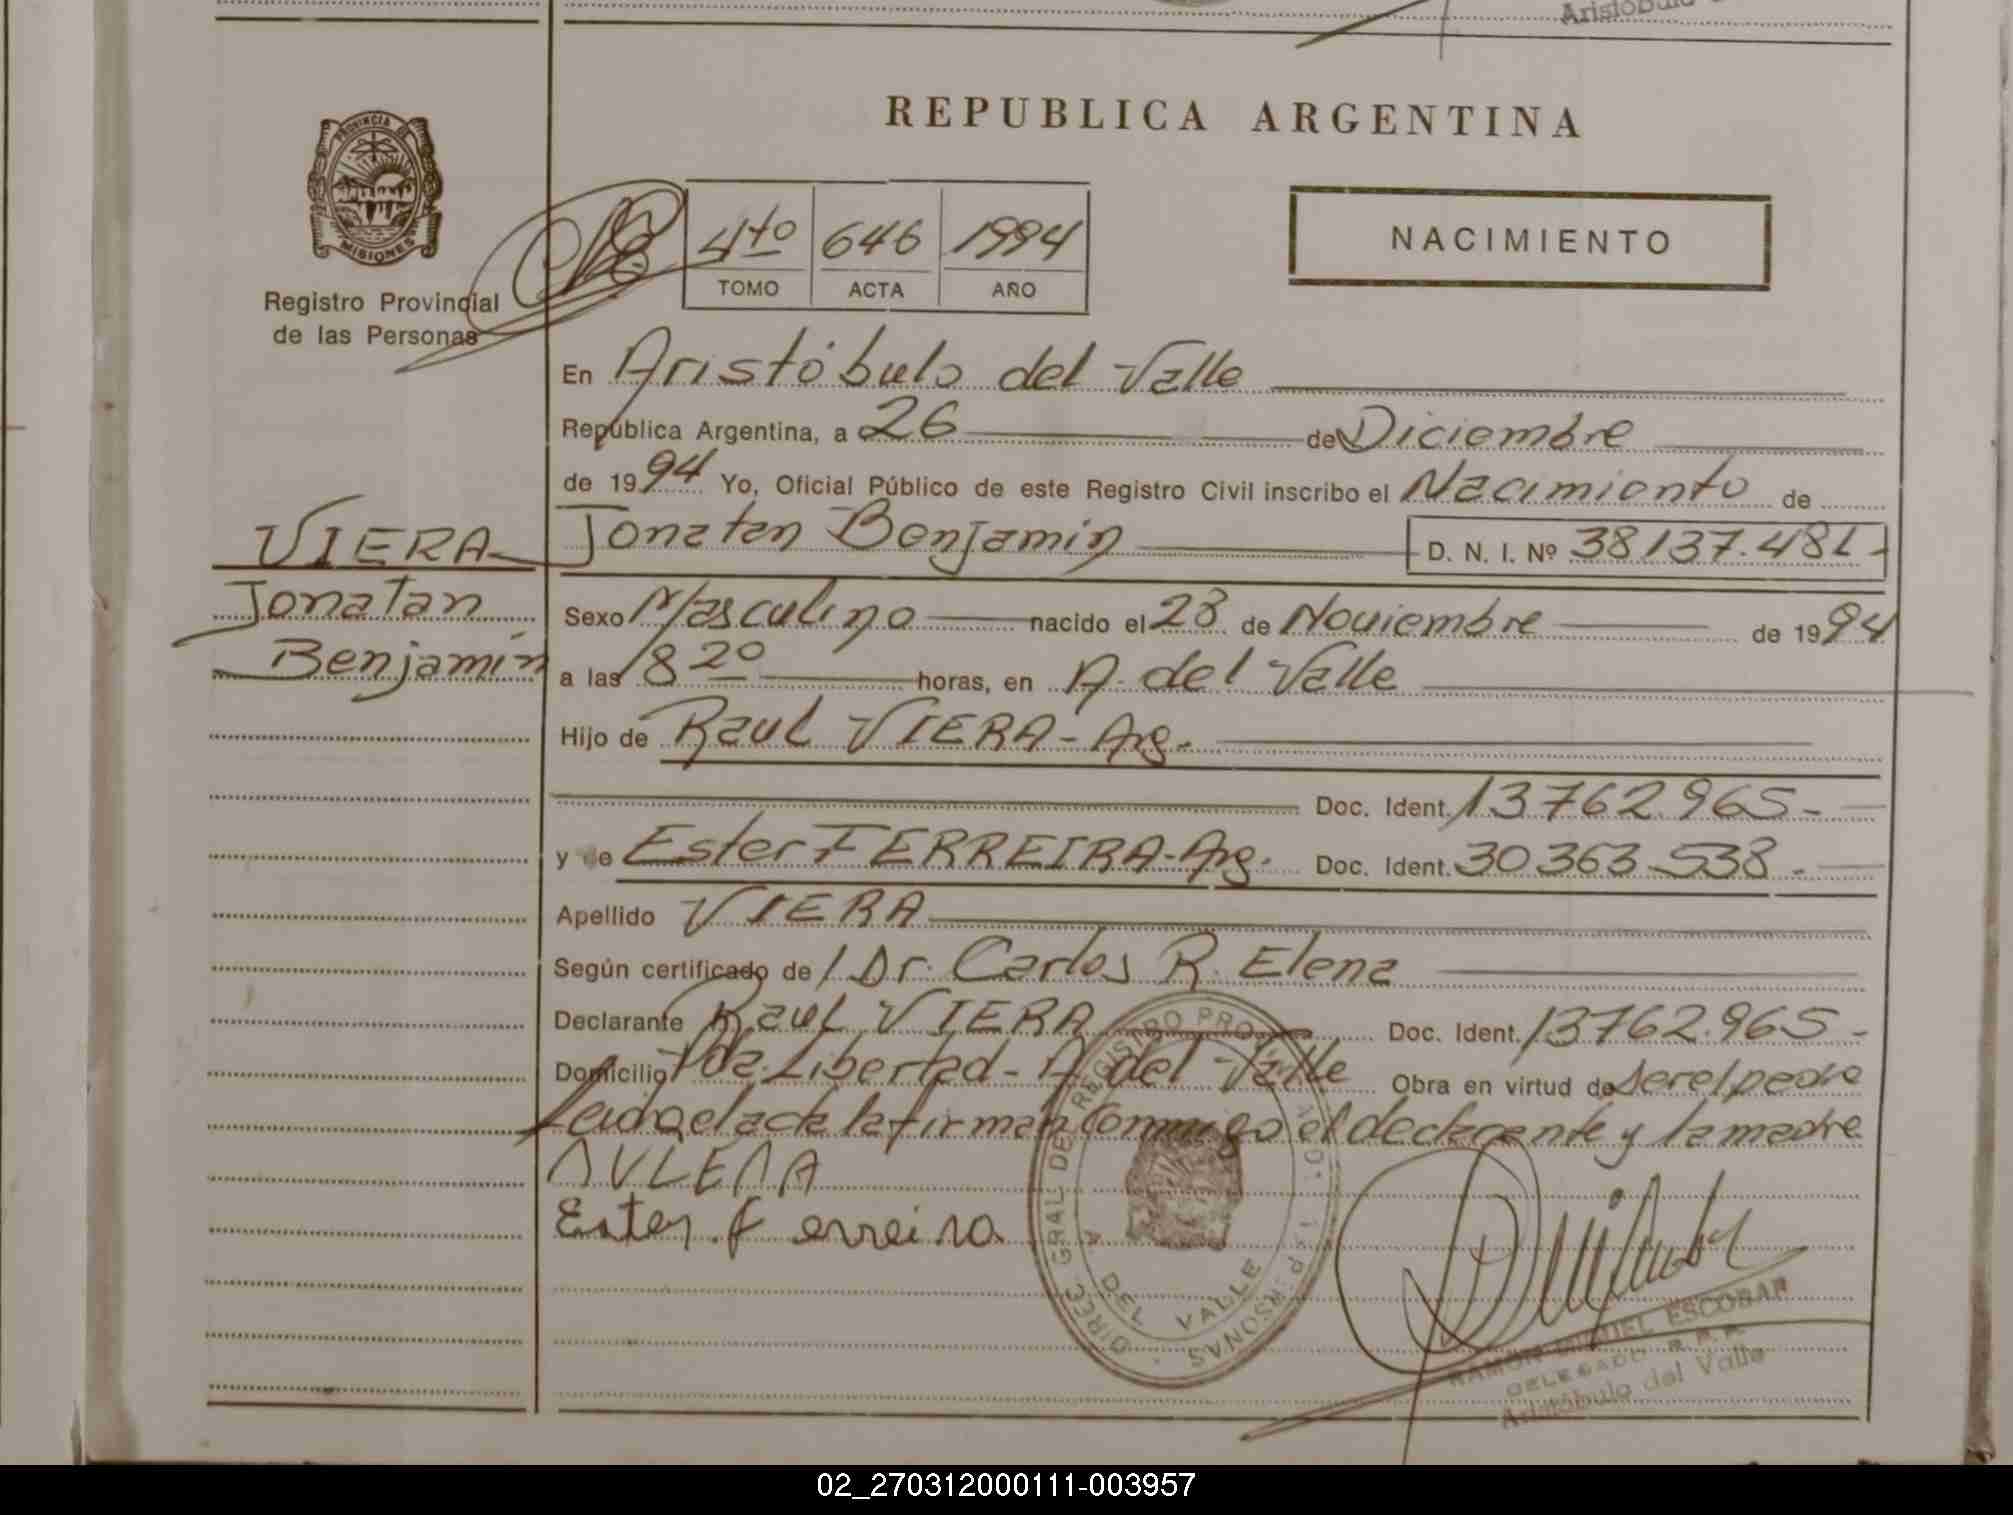 Aristóbulo
REPUBLICA ARGENTINA
PROVINCIA DE
MISIONES
Registro Provincial
de las Personas
4to 646 1994
TOMO ACTA AÑO
NACIMIENTO
En Aristóbulo del Valle
República Argentina, a 26 de Diciembre
de 1994 Yo, Oficial Público de este Registro Civil inscribo el Nacimiento de
Jonatan Benjamin D. N. I. Nº 38.137.481-
VIERA
Jonatan
Benjamin
Sexo Masculino nacido el 28 de Noviembre de 1994
a las 8 20 horas, en A. del Valle
Hijo de Raul VIERA - Arg.
Doc. Ident. 13762.965-
y de Ester FERREIRA-Arg. Doc. Ident. 30363.538-
Apellido VIERA
Según certificado de Dr. Carlos R. Elena
Declarante Raul VIERA Doc. Ident. 13762.965-
Domicilio Pda. Libertad - A. del Valle Obra en virtud de ser el padre
Leida el acta la firman conmigo el declarante y la madre
Ester. ferreira
DIREC. GRAL DEL REGISTRO PROV. PERSONAS
A. DEL VALLE
RAMON MIGUEL ESCOBAR
DELEGADO R. P. P.
Aristóbulo del Valle
02_270312000111-003957